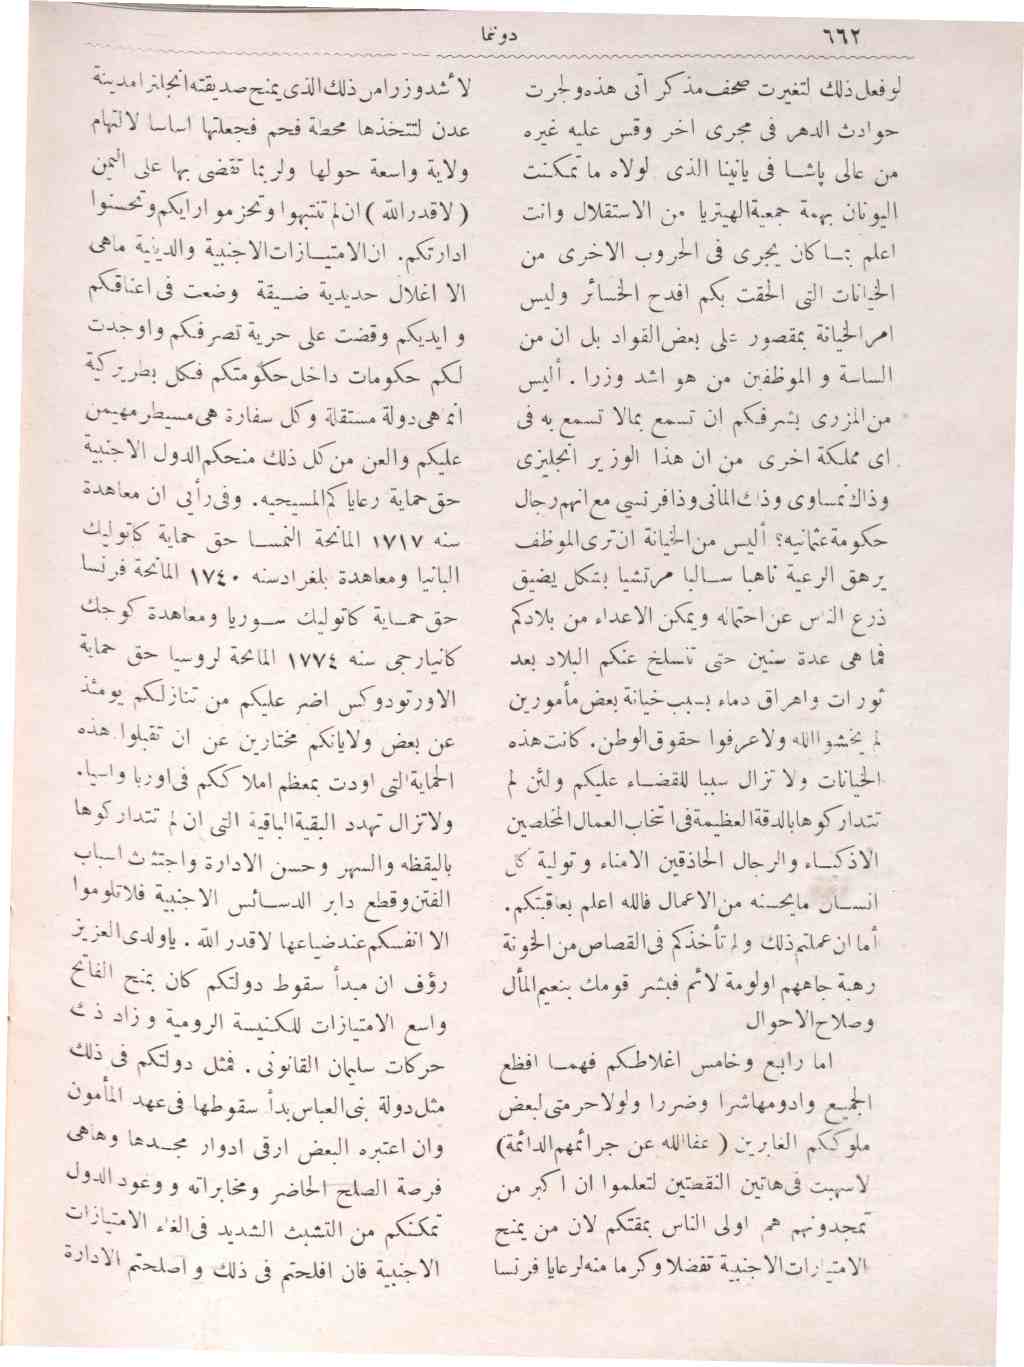 ٦٦٢
دونما
لوفعل ذلك لتغيرت صحف مذكراتى هذه ولجرت
حوادث الدهر فى مجرى اخر وقس عليه غيره
من عالى پاشا فى يانينا الذى لولاه ما تمكنت
اليونان بهمة جمعية الهيتريا من الاستقلال وانت
اعلم بما كان يجرى فى الحروب الاخرى من
الخيانات التى الحقت بكم افدح الخسائر وليس
امر الخيانة بمقصور على بعض القواد بل ان من
الساسة و الموظفين من هو اشد وزرا . أليس
من المزرى بشرفكم ان تسمع بمالا تسمع به فى
اى مملكة اخرى من ان هذا الوزير انجليزى
وذاك نمساوى وذاك المانى وذافرنسي مع انهم رجال
حكومة عثمانيه؟ أليس من الخيانة ان ترى الموظف
يرهق الرعية ناهبا سالبا مرتشيا بشكل يضيق
ذرع الناس عن احتماله ويمكن الاعداء من بلادكم
فما هى عدة سنين حتى تنسلخ عنكم البلاد بعد
ثورات واهراق دماء بسبب خيانة بعض مأمورين
لم يخشوا الله ولا عرفوا حقوق الوطن. كانت هذه
الخيانات ولا تزال سببا للقضاء عليكم ولئن لم
تتداركوها بالدقة العظيمة فى انتخاب العمال المخلصين
الاذكياء والرجال الحاذقين الامناء و تولية كل
انسان مايحسنه من الاعمال فالله اعلم بعاقبتكم.
أما ان عملتم ذلك ولم تأخذكم فى القصاص من الخونة
رهبة جاههم اولومة لائم فبشر قومك بنعيم المأل
وصلاح الاحوال
اما رابع وخامس اغلاطكم فهما افظع
الجميع وادومهاشرا وضررا ولولا حرمتى لبعض
ملوككم الغابرين ( عفا الله عن جرائمهم الدائمة)
لاسهبت فى هاتين النقطتين لتعلموا ان اكبر من
تمجدونهم هم اولى الناس بمقتكم لان من يمنح
الامتيازات الاجنبية تفضلا وكرما منه لرعايا فرنسا
لأشد وزرا من ذلك الذى يمنح صديقته انجلترا مدينة
عدن لتتخذها محطة فحم فجعلتها اساسا لالتهام
ولاية واسعة حولها ولربما تقضى بها على اليمن
( لاقدر الله ) ان لم تنتبهوا وتحزموا ارايكم وتحسنوا
ادارتكم. ان الامتيازات الاجنبية والدينية ماهى
الا اغلال حديدية ضيقة وضعت فى اعناقكم
و ايديكم وقضت على حرية تصرفكم واوجدت
لكم حكومات داخل حكومتكم فكل بطريركية
انما هى دولة مستقلة وكل سفارة هى مسيطر مهيمن
عليكم والعن من كل ذلك منحكم الدول الاجنبية
حق حماية رعاياكم المسيحيه. وفى رأيى ان معاهدة
سنه ١٧١٧ المانحة النمسا حق حماية كاتوليك
البانيا ومعاهدة بلغراد سنه ١٧٤٠ المانحة فرنسا
حق حماية كاتوليك سوريا ومعاهدة كوجك
كانيارجى سنه ١٧٧٤ المانحة لروسيا حق حماية
الاورتودوكس اضر عليكم من تنازلكم يومئذ
عن بعض ولاياتكم مختارين عن ان تقبلوا هذه
الحماية التى اودت بمعظم املاككم فى اوربا واسيا.
ولاتزال تهدد البقية الباقية التى ان لم تتداركوها
باليقظه والسهر وحسن الادارة واجتثاث اسباب
الفتن وقطع دابر الدسائس الاجنبية فلاتلوموا
الا انفسكم عند ضياعها لاقدر الله . ياولدى العزيز
رؤف ان مبدأ سقوط دولتكم كان بمنح الفاتح
واسع الامتيازات للكنيسة الرومية وزاد ذلك
حركات سليمان القانونى . فمثل دولتكم فى ذلك
مثل دولة بنى العباس بدأ سقوطها فى عهد المأمون
وان اعتبره البعض ارقى ادوار مجدها وهاهى
فرصة الصلح الحاضر ومخابراته ووعود الدول
تمكنكم من التشبث الشديد فى الغاء الامتيازات
الاجنبية فان افلحتم فى ذلك و اصلحتم الادارة